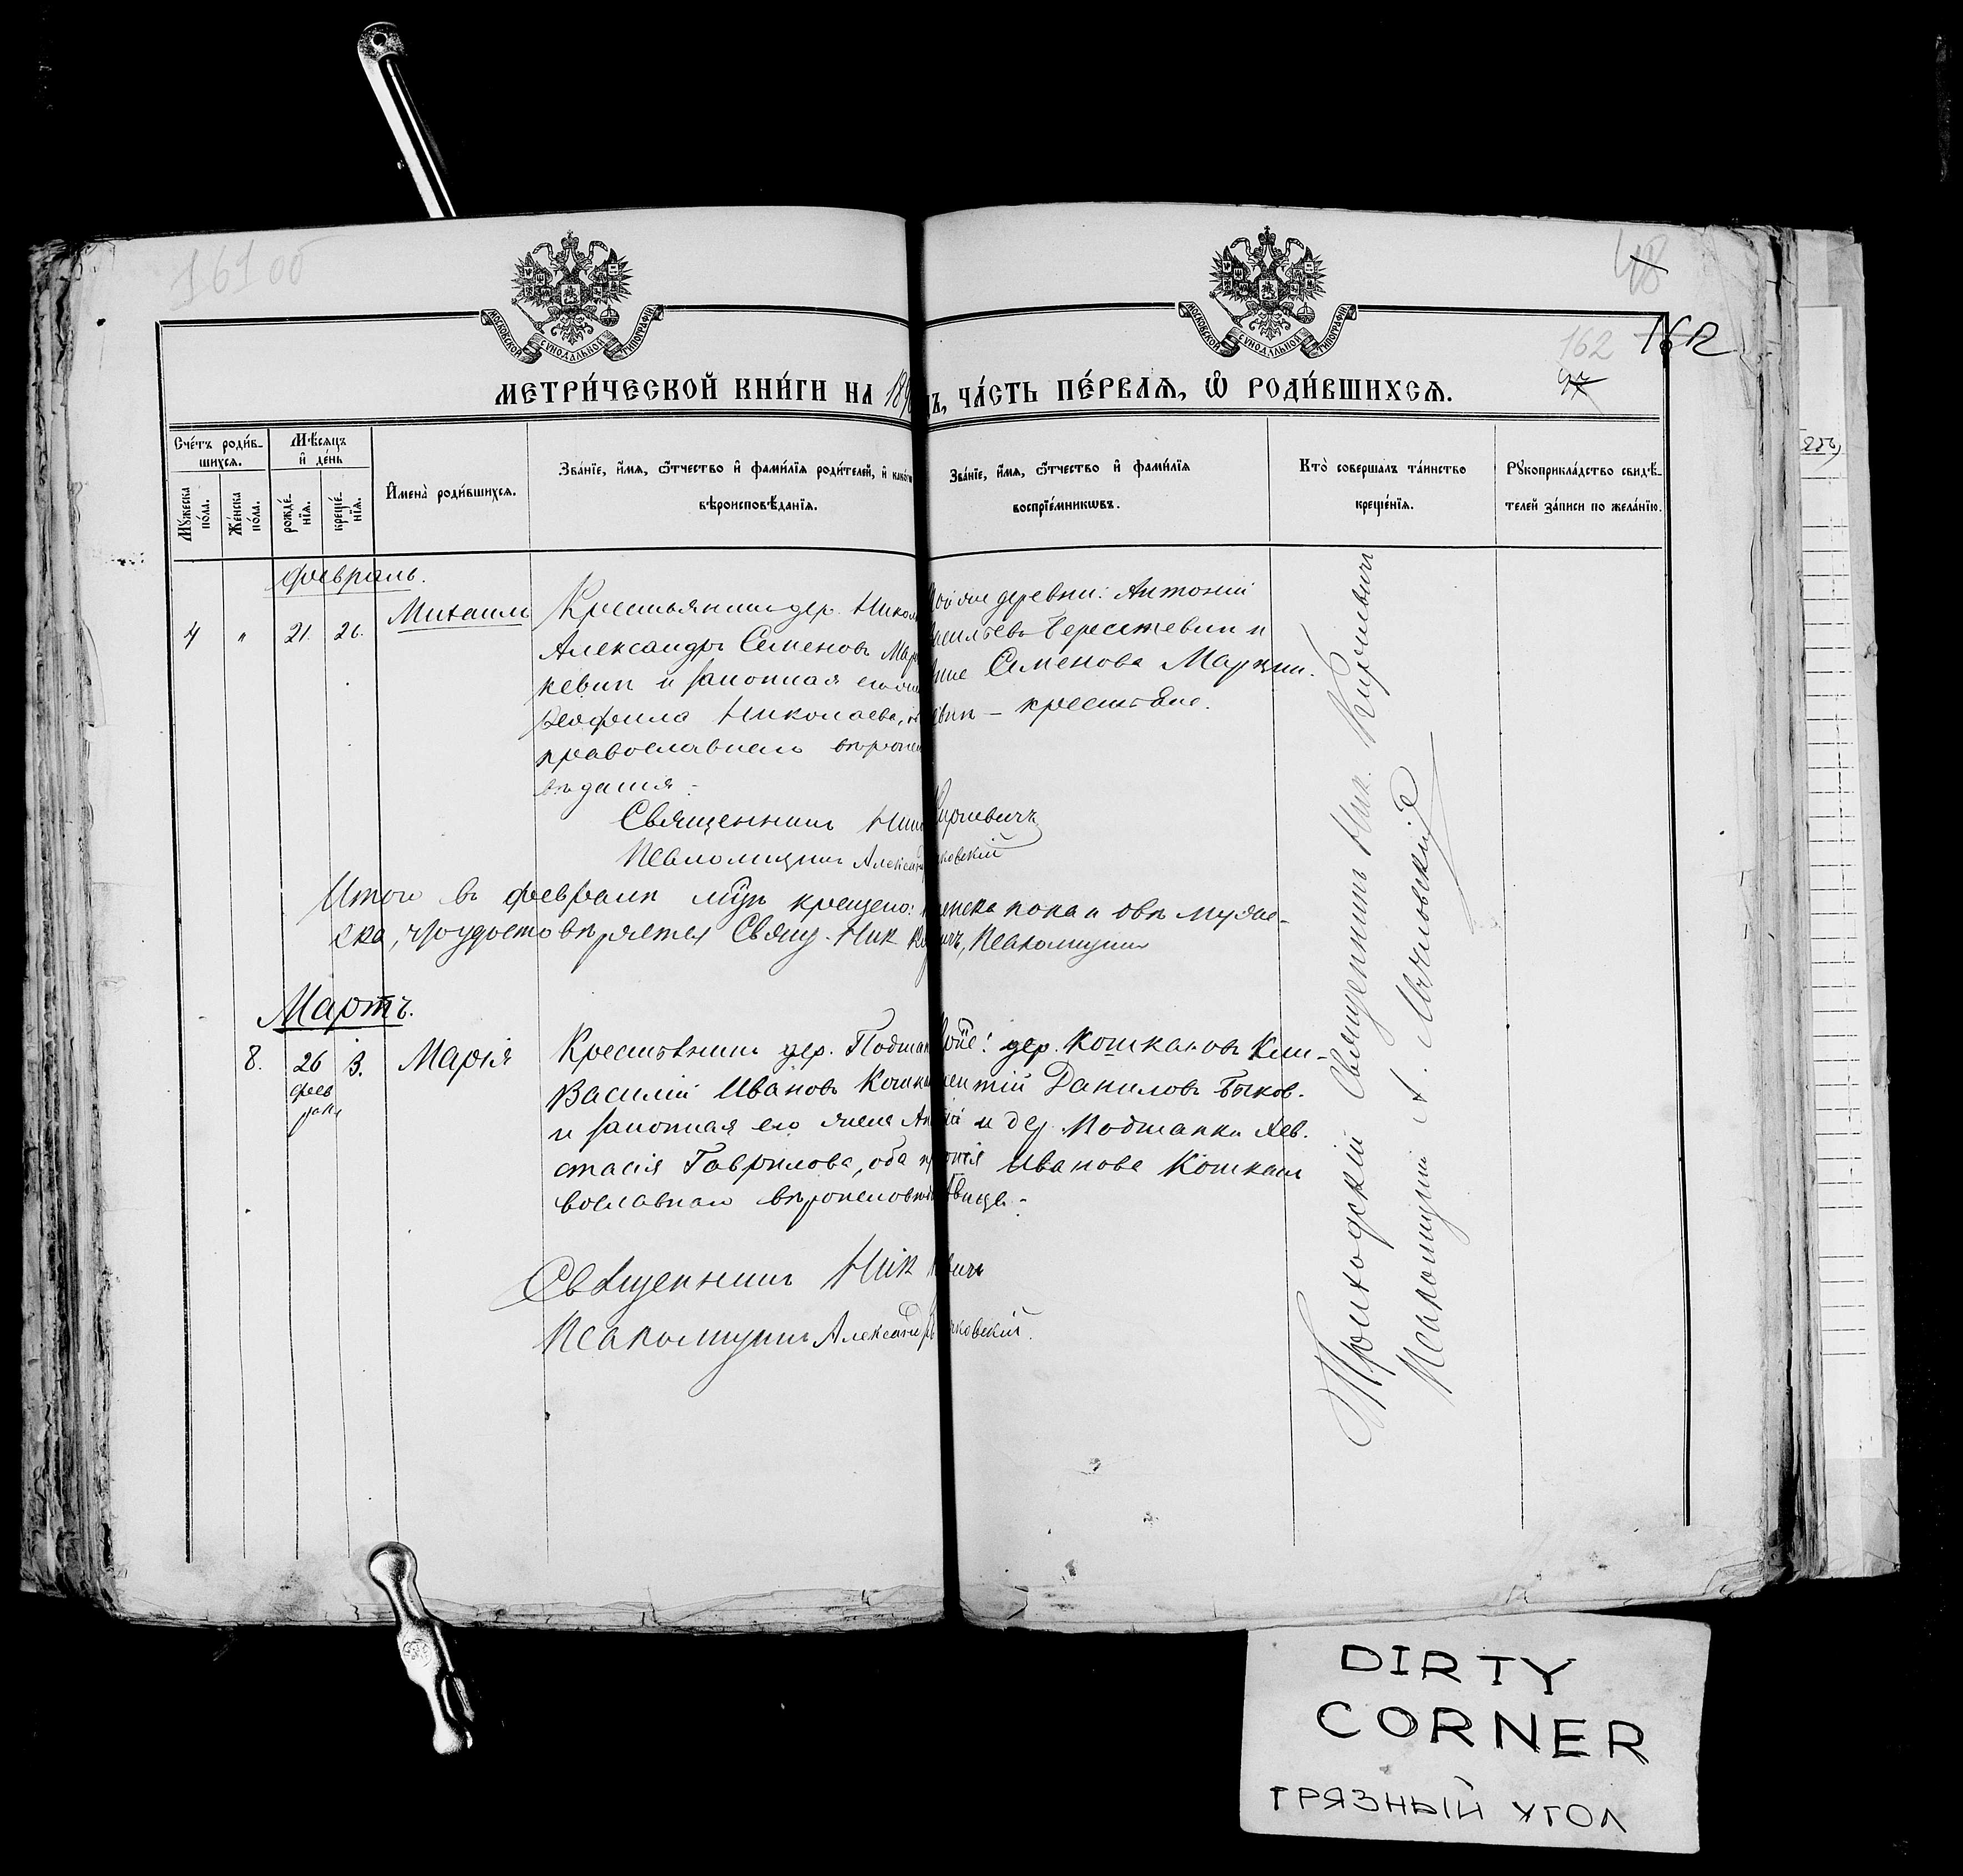 16100
48
МОСКОВСКОЙ СѴНОДАЛЬНОЙ ТИПОГРАФІИ
МОСКОВСКОЙ СѴНОДАЛЬНОЙ ТИПОГРАФІИ
162 162
МЕТРИ́ЧЕСКОЙ КНИ́ГИ НА 189
Ъ, ЧА́СТЬ ПЕ́РВАѦ, Ѡ҆ РОДИ́ВШИХСѦ.
Сче́тъ роди́в-
шихсѧ.
Мѣ́сѧцъ
и҆ де́нь
Мꙋ́жеска по́ла.
Же́нска по́ла.
рожде́-нїѧ.
креще́-нїѧ.
И҆мена̀ роди́вшихсѧ.
Зва́нїе, и҆́мѧ, ѻ҆́тчество и҆ фами́лїѧ роди́телей, и҆ како́гѡ
вѣроисповѣ́данїѧ.
Зва́нїе, и҆́мѧ, ѻ҆́тчество и҆ фами́лїѧ
воспрїе́мникѡвъ.
Кто̀ соверша́лъ та́инство
креще́нїѧ.
Рꙋкоприкла́дство свидѣ́-
телей за́писи по жела́нїю.
Февраль.
4 " 21. 26. Михаилъ
Крестьянинъ дер. Никол
Александръ Семеновъ Мар
кевич и законная его же
Николаева,
православнаго вероис
вѣданія.
Священникъ Ник
Псаломщикъ Александ
ой же деревни: Антоній
асильевъ Бересневич и
Семенова Марцин.
евич - крестьяне.
Кирпевичъ
ковскій
Итого въ февралѣ мцѣ крещено: женска пола и овѣ муже-
ска, что удостовѣряетъ Свящ. Ник К ичъ, Псаломщикъ
Мартъ.
8. 26 3. Марія
фев
раля
Крестьянинъ дер. Подман
Василій Ивановъ Кошка
и законная его жена Ан
стасія Гаврилова, оба п
вославнаго вѣроисповѣд
Священникъ Ник
Псаломщикъ Александръ
дер. Кошкановъ Кли-
ментій Даниловъ Быков.
и дер. Подманки Хев.
онія Иванова Кошкан
вица.
вичъ
чковскій.
Приходскій Священникъ Ник. Кирпевичъ
Псаломщикъ А.
DIRTY
CORNER
ГРЯЗНЫЙ УГОЛ